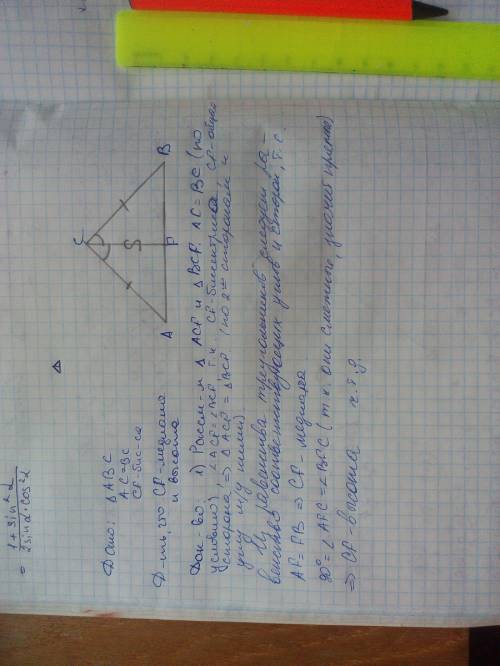 = 1 + sin² α / 2 sin α · cos² α
Дано: Δ ABC
AC = BC
CP - бис-са
Д-ть, что CP - медиана
и высота
C
A
P
B
Док-во: 1) Рассм-м Δ ACP и Δ BCP. AC = BC (по
условию) ∠ ACP = ∠ BCP т.к. CP - биссектриса CP - общая
сторона, ⇒ Δ ACP = Δ BCP (по 2-м сторонам и
углу м/у ними)
Из равенства треугольников следует ра-
венство соответствующих углов и сторон, т.е.
AP = PB ⇒ CP - медиана
90° = ∠ APC = ∠ BPC (т.к. они смежные, значит прямые)
⇒ CP - высота ч.т.д.